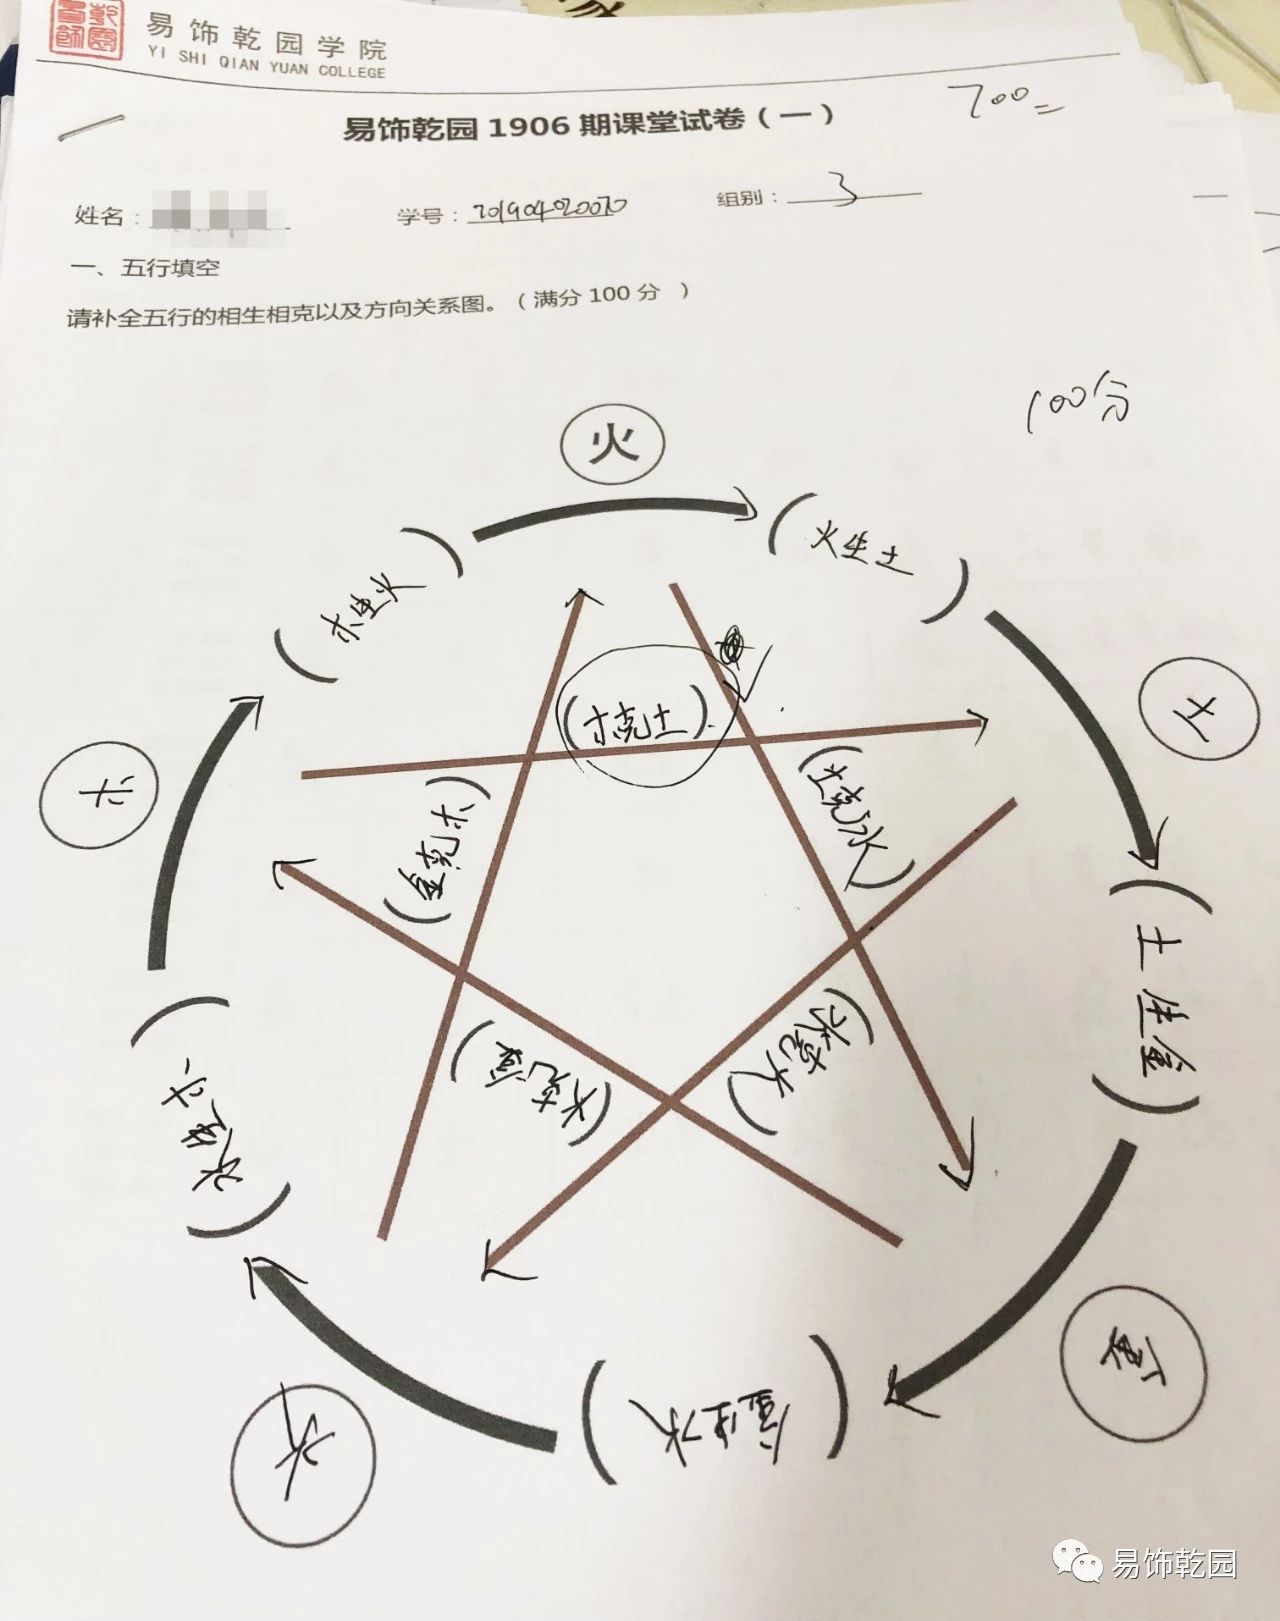 易饰乾园学院
YI SHI QIAN YUAN COLLEGE
易饰乾园 1906 期课堂试卷（一）
700
姓名：
学号：
组别：3
一、五行填空
请补全五行的相生相克以及方向关系图。（满分 100 分 ）
100分
火
（火生土）
（木生火）
土
木
（木克土）
（土克水）
（金克木）
（土生金）
（水克火）
（火克金）
（水生木）
金
（金生水）
水
易饰乾园